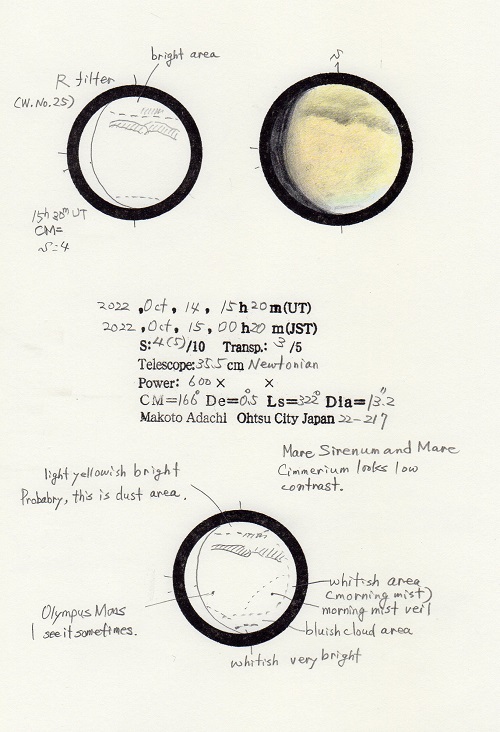 bright area
R filter
(W.No.25)
S
15h20m UT
CM=
S=4
2022 , Oct , 14 , 15h20m(UT)
2022 , Oct , 15 , 00h20m(JST)
S:4(5)/10 Transp.: 3 /5
Telescope:35.5cm Newtonian
Power: 600× ×
CM=166° De=0.5° Ls=322° Dia=13.2"
Makoto Adachi Ohtsu City Japan 22-217
Mare Sirenum and Mare
Cimmerium looks low
contrast.
light yellowish bright
Probabry, this is dust area.
Olympus Mons
I see it sometimes.
whitish area
(morning mist)
morning mist veil
bluish cloud area
whitish very bright